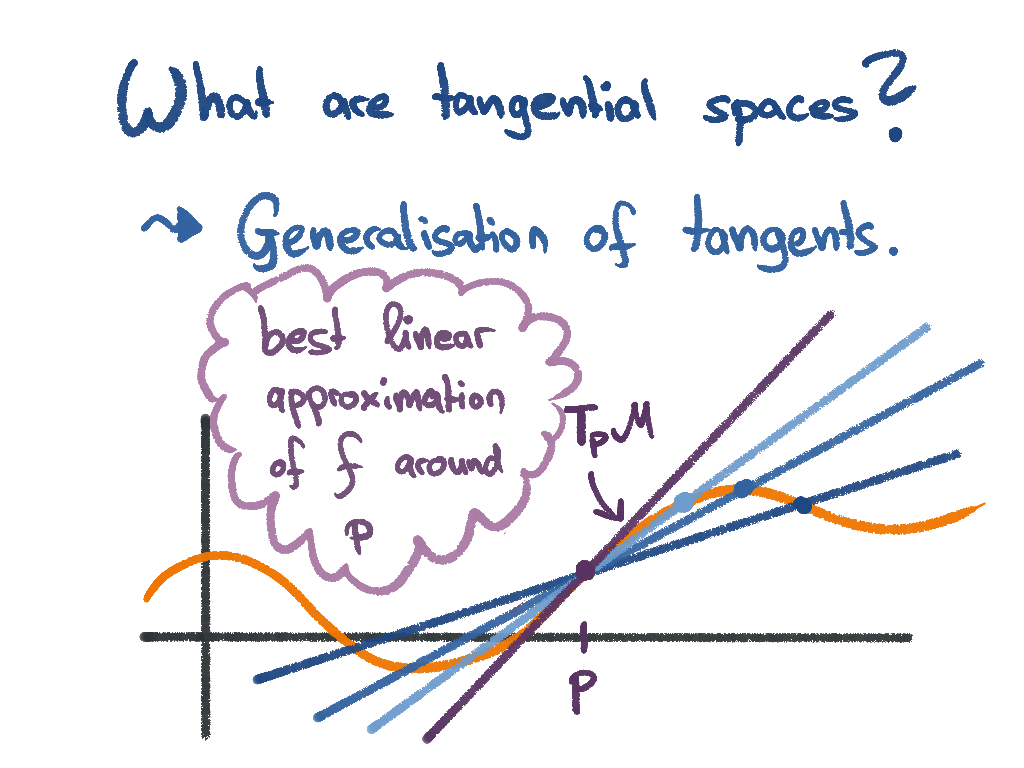 What are tangential spaces?
Generalisation of tangents.
best linear
approximation
of f around
p
TpM
p